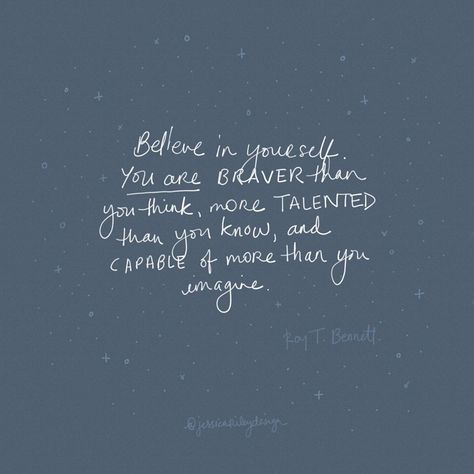 Believe in yourself.
You are BRAVER than
you think, more TALENTED
than you know, and
CAPABLE of more than you
imagine.
Roy T. Bennett.
@jessicarileydesign